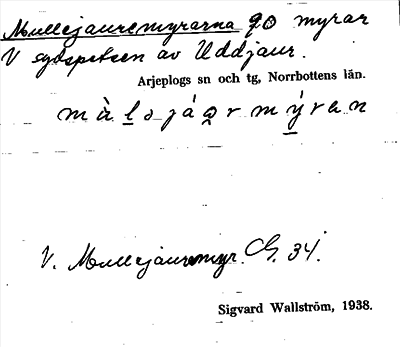 Mullejauremyrarna 90 myrar
V sydspetsen av Uddjaur.
Arjeplogs sn och tg, Norrbottens län.
V. Mullejauremyr. G. 34.
Sigvard Wallström, 1938.